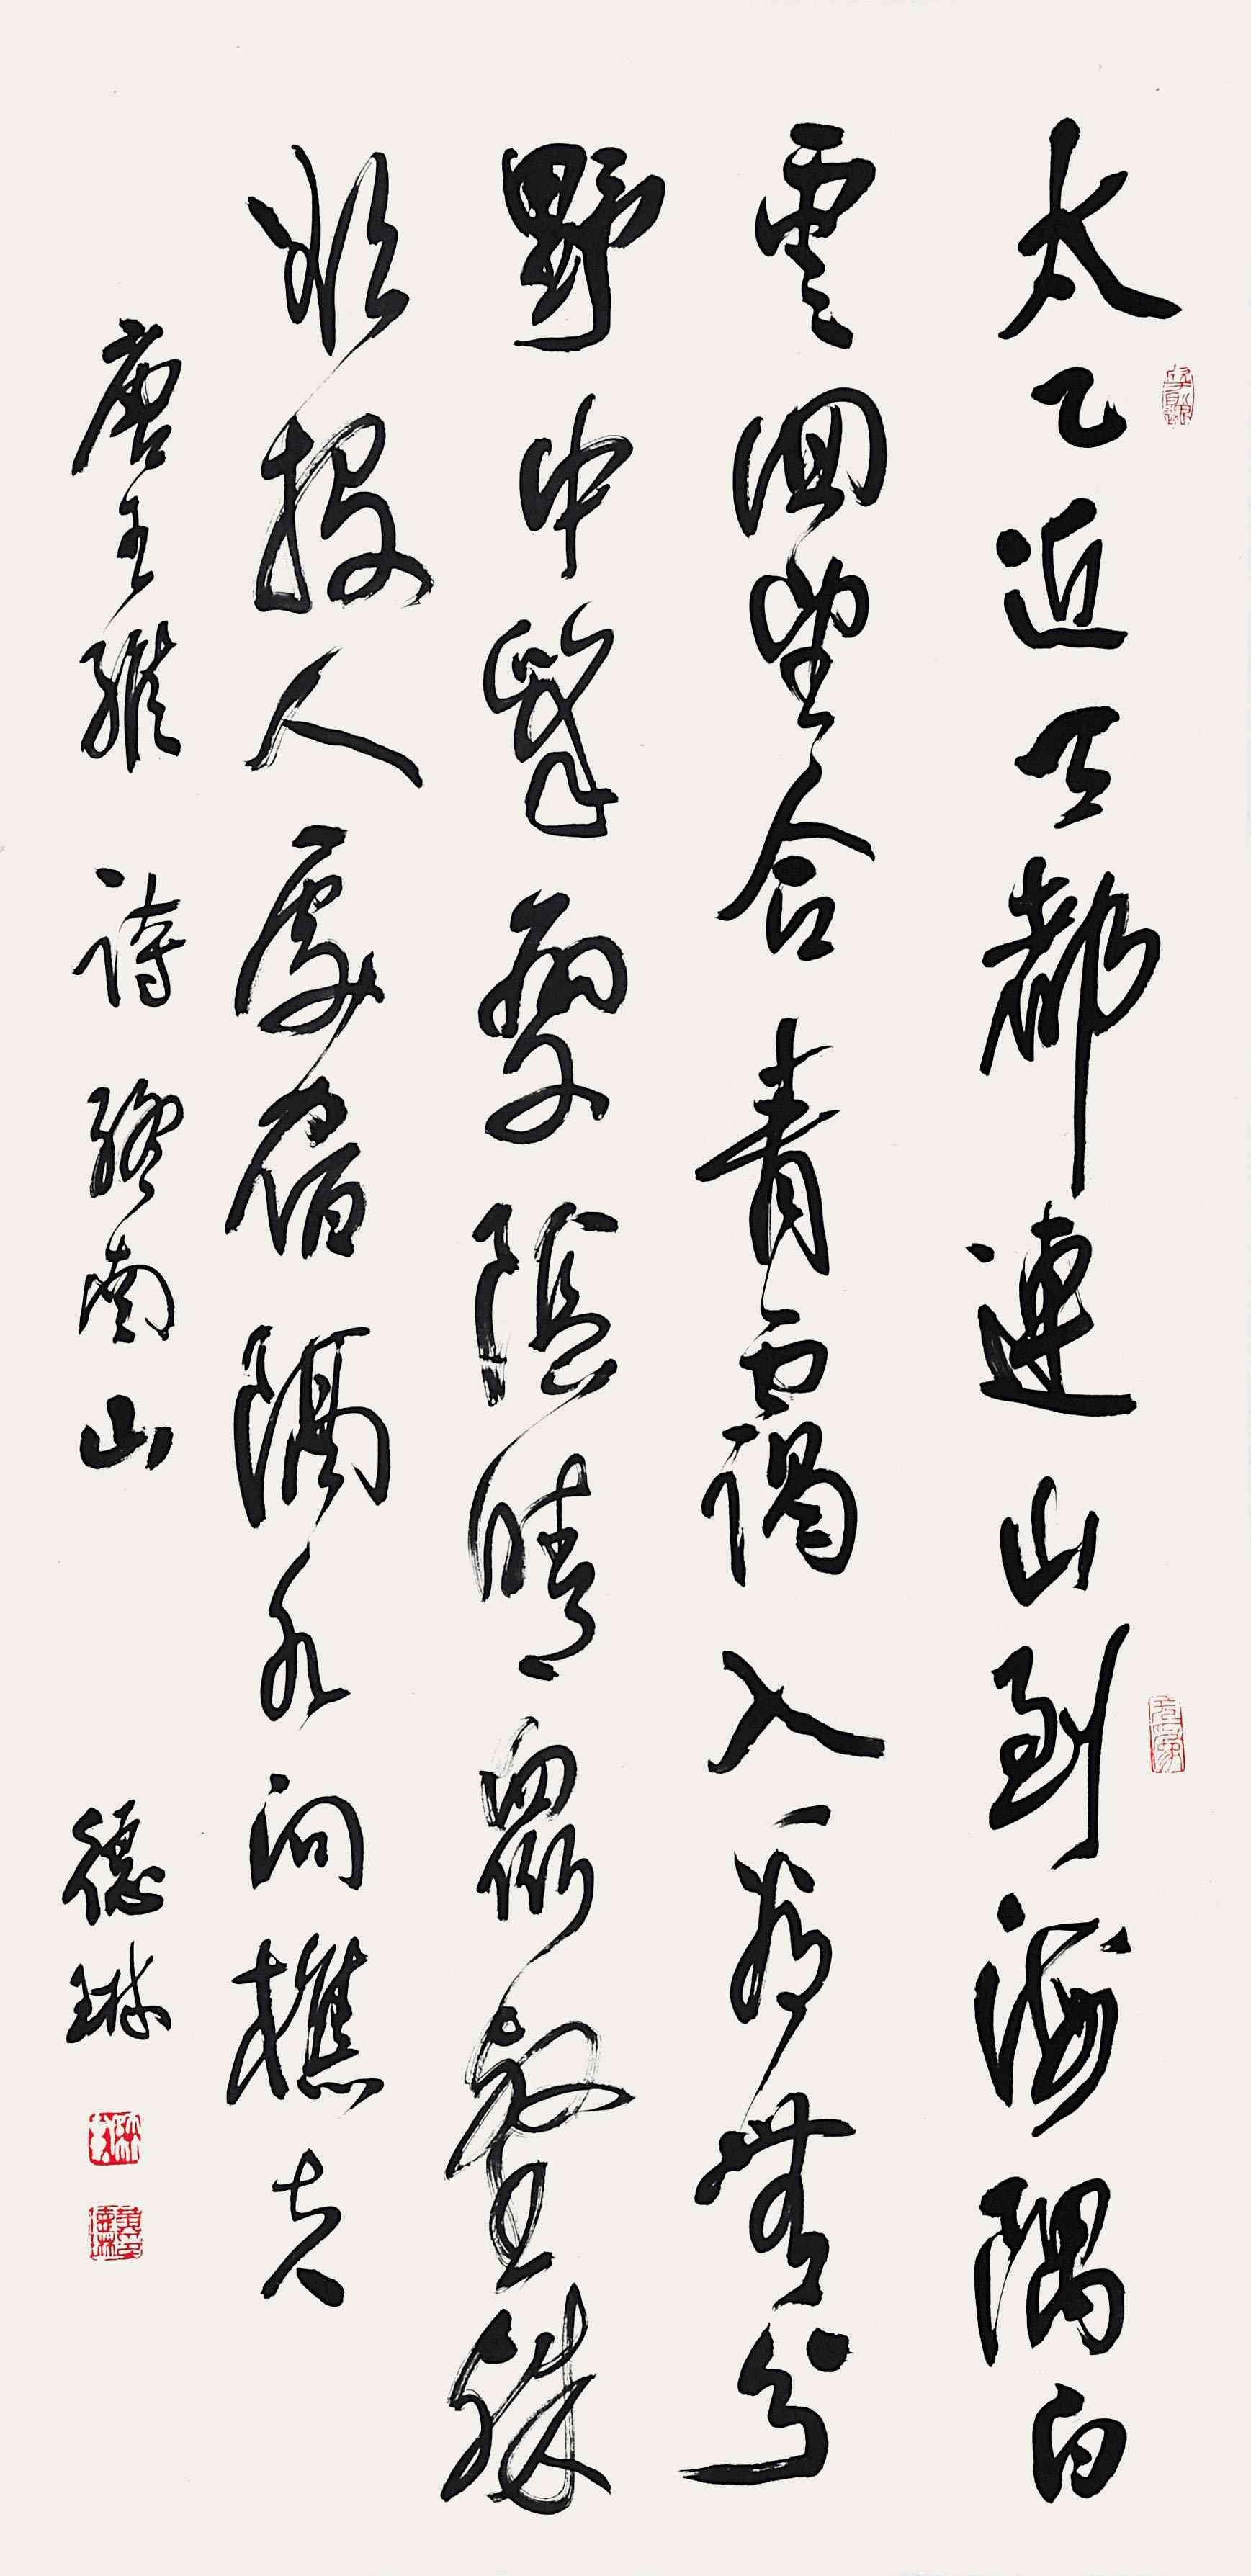 太乙近天都連山到海隅白
雲回望合青靄入看無分
野中峯變陰晴衆壑殊
欲投人處宿隔水問樵夫
唐王維詩終南山 德琳